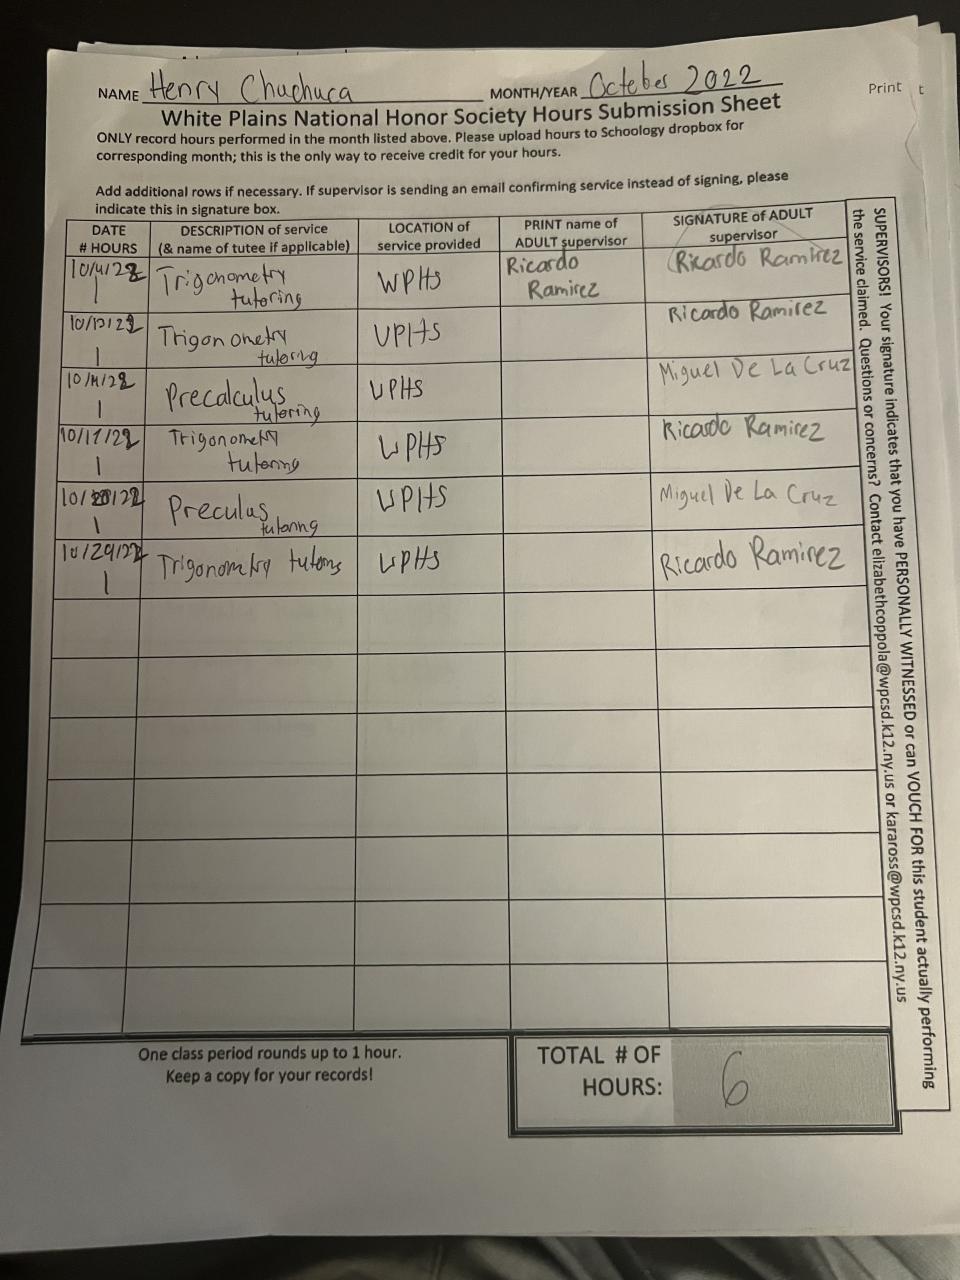 NAME Henry Chuchuca MONTH/YEAR October 2022
Print t
White Plains National Honor Society Hours Submission Sheet
ONLY record hours performed in the month listed above. Please upload hours to Schoology dropbox for
corresponding month; this is the only way to receive credit for your hours.
Add additional rows if necessary. If supervisor is sending an email confirming service instead of signing, please
indicate this in signature box.
DATE
# HOURS
DESCRIPTION of service
(& name of tutee if applicable)
LOCATION of
service provided
PRINT name of
ADULT supervisor
SIGNATURE of ADULT
supervisor
10/4/22
1
Trigonometry
tutoring
WPHS
Ricardo
Ramirez
Ricardo Ramirez
1
Trigonometry
tutoring
WPHS
Ricardo Ramirez
1
Precalculus
tutoring
WPHS
Miguel De La Cruz
10/17/22
1
Trigonometry
tutoring
WPHS
Ricardo Ramirez
1
Preculus
tutoring
WPHS
Miguel De La Cruz
10/29/22
1
Trigonometry
WPHS
Ricardo Ramirez
One class period rounds up to 1 hour.
Keep a copy for your records!
TOTAL # OF
HOURS:
6
SUPERVISORS! Your signature indicates that you have PERSONALLY WITNESSED or can VOUCH FOR this student actually performing
the service claimed. Questions or concerns? Contact elizabethcoppola@wpcsd.k12.ny.us or karaross@wpcsd.k12.ny.us